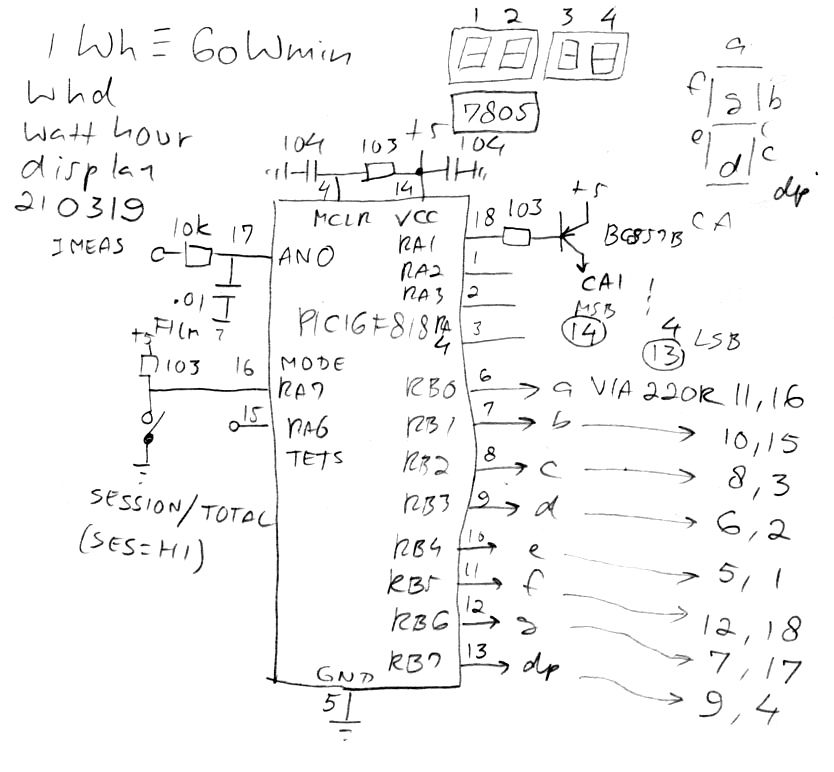 1 Wh ≡ 60Wmin
Whd
watt hour
display
210319
1 2 3 4
7805
a
f g b
e d c
dp
CA
104 103 +5 104
4 14
MCLR VCC
10k 17
IMEAS
AN0
.01
FILM
RA1 18 103 +5
BC857B
RA2 1
RA3 2
RA4 3
CA1
MSB
14
4 LSB
13
PIC16F818
+5
103 16
MODE
RA7
15
RA6
TETS
SESSION/TOTAL
(SES=HI)
RB0 6 a VIA 220R 11,16
RB1 7 b 10,15
RB2 8 c 8,3
RB3 9 d 6,2
RB4 10 e 5,1
RB5 11 f 12,18
RB6 12 g 7,17
RB7 13 dp 9,4
GND
5